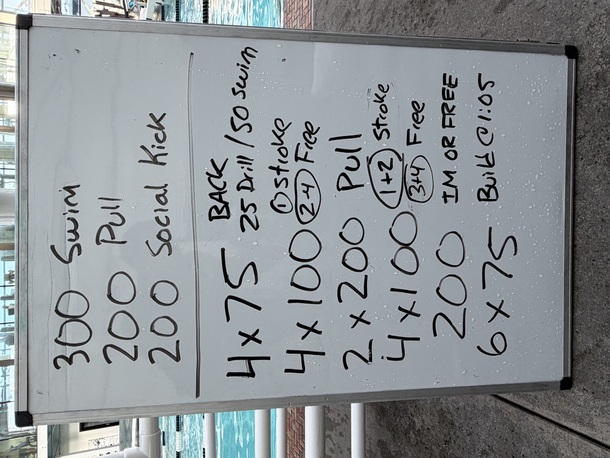 300 Swim
200 Pull
200 Social Kick
4 x 75 BACK
25 Drill / 50 Swim
4 x 100 ① stroke
2-4 Free
2 x 200 Pull
4 x 100 1+2 Stroke
3+4 Free
200 IM OR FREE
6 x 75 Build @ 1:05